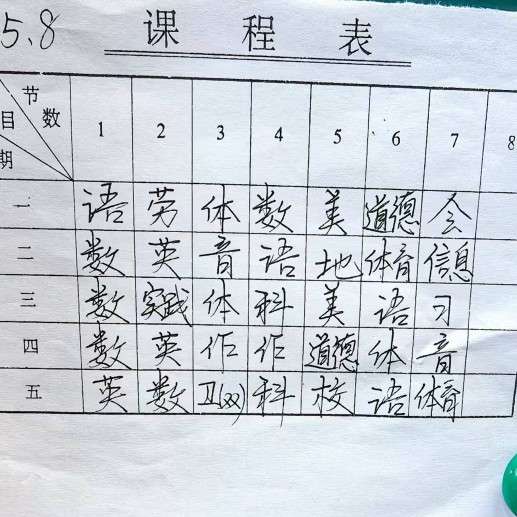 5.8 课程表
节数
目
期
1 2 3 4 5 6 7 8
一 语 劳 体 数 美 道德 会
二 数 英 音 语 地 体育 信息
三 数 实践 体 科 美 语 习
四 数 英 作 作 道德 体 音
五 英 数 卫(双) 科 校 语 体育